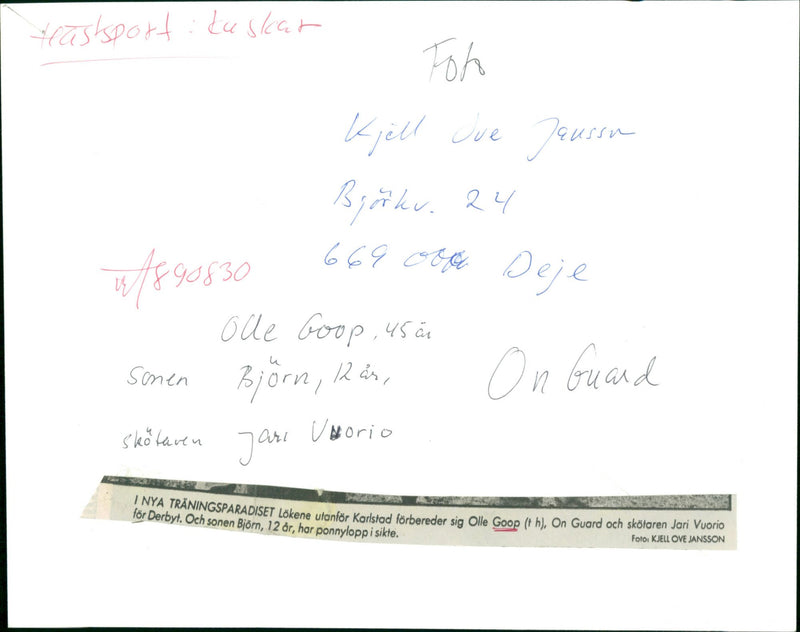 Hästsport : kuskar
Foto
Kjell Ove Jansson
Björkv. 24
669 00 Deje
890830
Olle Goop, 45 år
sonen Björn, 12 år,
On Guard
skötaren Jari Vuorio
I NYA TRÄNINGSPARADISET Lökene utanför Karlstad förbereder sig Olle Goop (t h), On Guard och skötaren Jari Vuorio
för Derbyt. Och sonen Björn, 12 år, har ponnylopp i sikte.
Foto: KJELL OVE JANSSON